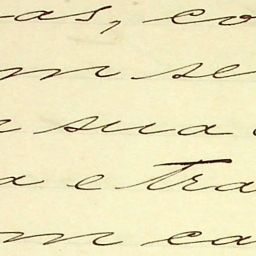 as, co
m se
sua
a e tra
m ca